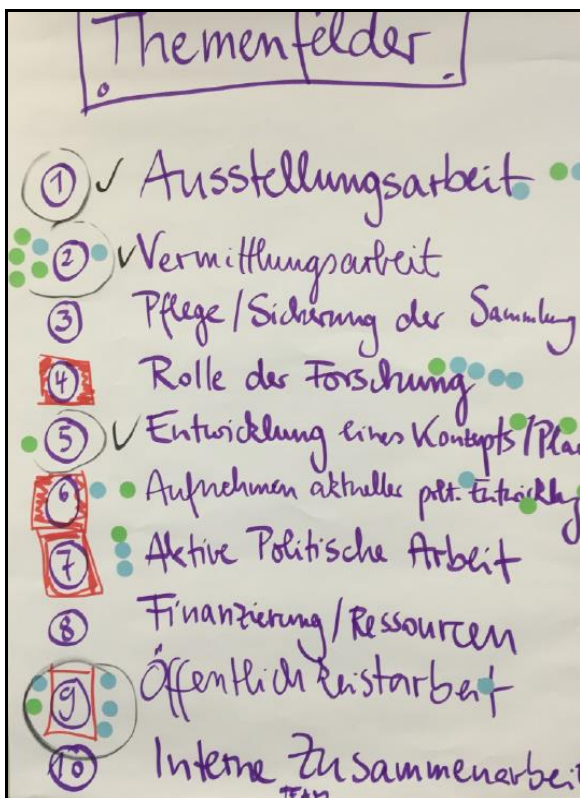 Themenfelder
1 Ausstellungsarbeit
2 Vermittlungsarbeit
3 Pflege/Sicherung der Sammlung
4 Rolle der Forschung
5 Entwicklung eines Konzepts/Pla
6 Aufnehmen aktueller polit. Entwicklung
7 Aktive Politische Arbeit
8 Finanzierung/Ressourcen
9 Öffentlichkeistarbeit
10 Interne Zusammenarbeit
TEAM